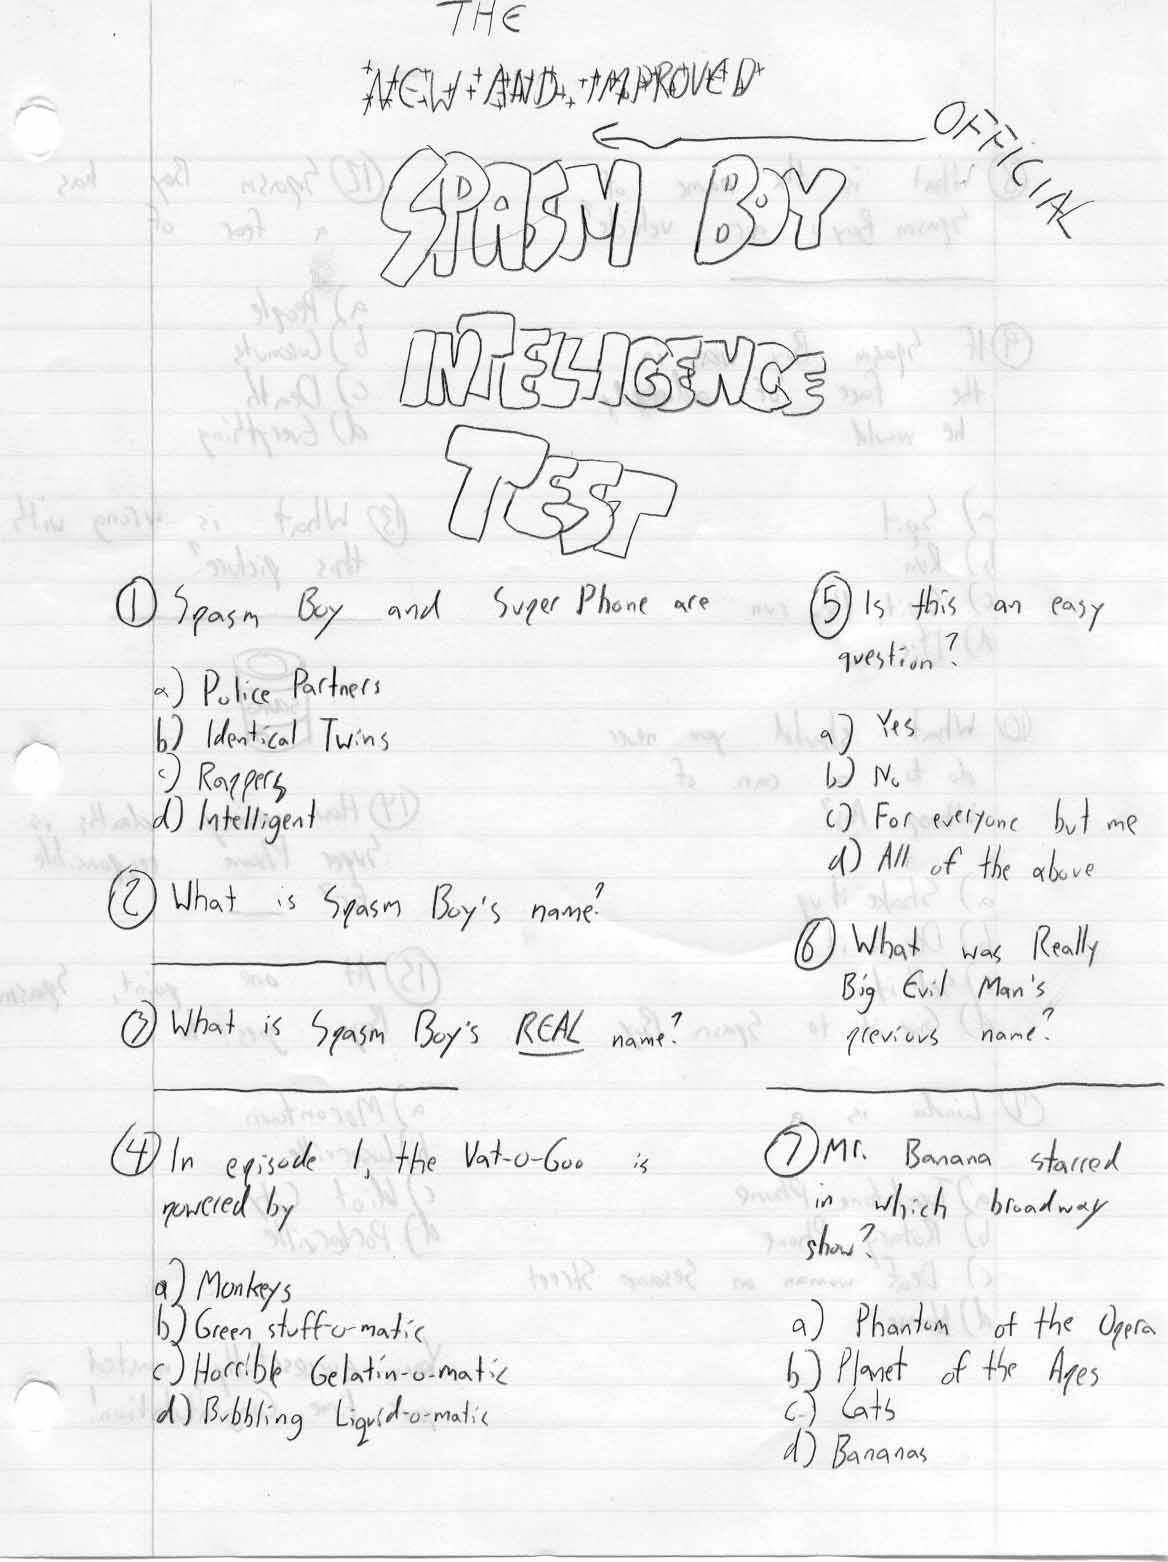 THE
NEW AND IMPROVED
OFFICIAL
SPASM BOY
INTELLIGENCE
TEST
① Spasm Boy and Super Phone are
a) Police Partners
b) Identical Twins
c) Rappers
d) Intelligent
② What is Spasm Boy's name?
③ What is Spasm Boy's REAL name?
④ In episode 1, the Vat-o-Goo is
powered by
a) Monkeys
b) Green stuff-o-matic
c) Horrible Gelatin-o-matic
d) Bubbling Liquid-o-matic
⑤ Is this an easy
question?
a) Yes
b) No
c) For everyone but me
d) All of the above
⑥ What was Really
Big Evil Man's
previous name?
⑦ Mr. Banana starred
in which broadway
show?
a) Phantom of the Opera
b) Planet of the Apes
c) Cats
d) Bananas